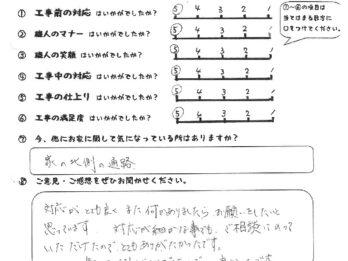 ① 工事前の対応 はいかがでしたか? 5 4 3 2 1
② 職人のマナー はいかがでしたか? 5 4 3 2 1
③ 職人の笑顔 はいかがでしたか? 5 4 3 2 1
④ 工事中の対応 はいかがでしたか? 5 4 3 2 1
⑤ 工事の仕上り はいかがでしたか? 5 4 3 2 1
⑥ 工事の満足度 はいかがでしたか? 5 4 3 2 1
①〜⑥の項目は
当てはまる数字に
○をつけてください。
⑦ 今、他にお家に関して気になっている所はありますか?
家の北側の通路
⑧ ご意見・ご感想をぜひお聞かせください。
対応がとても良く また何かありましたら お願いをしたいと
思っています。 対応が細かい事でも、ご相談にのって
いただけたので とてもありがたかったです。